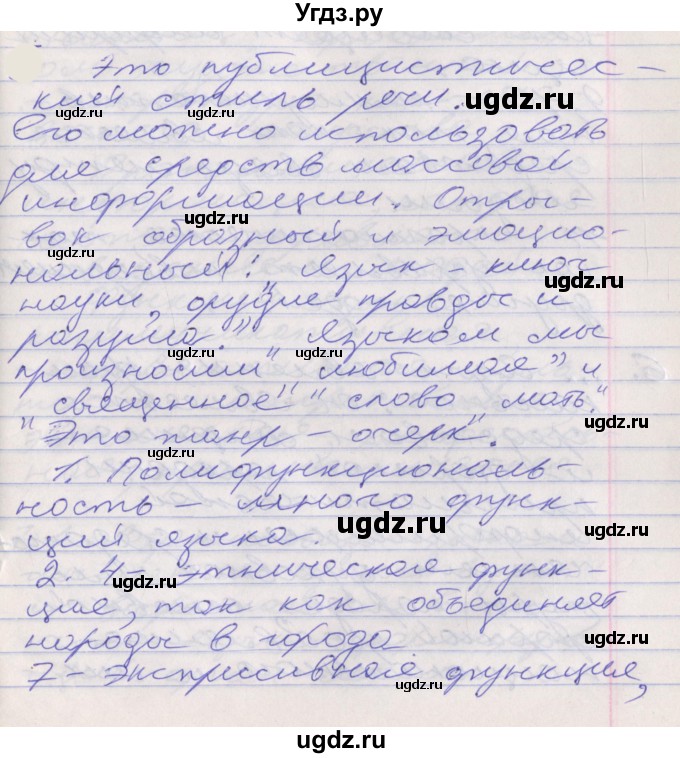 Угдз.ру
Это публицистичес-
кий стиль речи.
ugdz.ru
Его можно использовать
для средств массовой
ugdz.ru
информации. Отры-
ugdz.ru
вок образный и эмоцио-
ugdz.ru
нальный: "Язык – ключ
науки, орудие правды и
ugdz.ru
разума." Языком мы
ugdz.ru ugdz.ru
произносим "любимая" и
"священное" "слово мать."
ugdz.ru
"Это жанр – очерк".
1. Полифункциональ-
ность – много функ-
ugdz.ru
ций языка.
2. 4 – этническая функ-
ugdz.ru
ция, так как объединяет
народы в города
ugdz.ru
7 – Экспрессивная функция,
ugdz.ru
ugdz.ru